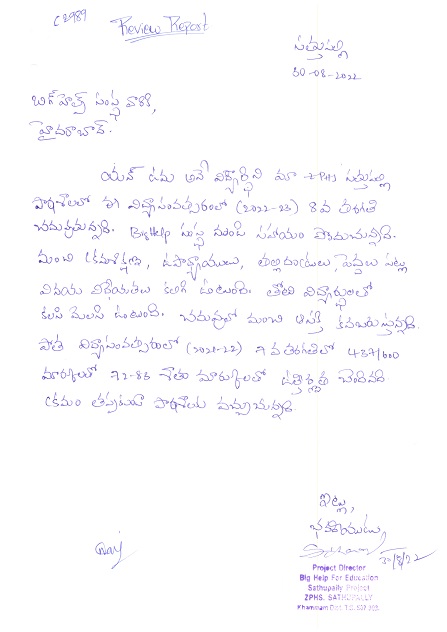 C2989
Review Report
సత్తుపల్లి
30-08-2022
బిగ్ హెల్ప్ సంస్థ వారికి,
హైదరాబాద్.
యన్ ఉమ అనే విద్యార్థిని మా ZPHS సత్తుపల్లి
పాఠశాలలో ఈ విద్యాసంవత్సరంలో (2022-23) 8వ తరగతి
చదువుతున్నది. BigHelp సంస్థ నుండి సహాయం పొందుచున్నది.
మంచి క్రమశిక్షణ, ఉపాధ్యాయులు, తల్లిదండ్రులు, పెద్దలు పట్ల
వినయ విధేయతలు కలిగి ఉంటుంది. తోటి విద్యార్థులతో
కలసి మెలసి ఉంటుంది. చదువులో మంచి ఆసక్తి కనబరుస్తున్నది.
పోతే విద్యాసంవత్సరంలో (2021-22) 7వ తరగతిలో 437/600
మార్కులతో 72-83 శాతం మార్కులతో ఉత్తీర్ణత చెందినది
క్రమం తప్పకుండా పాఠశాలకు వచ్చుచున్నది
ఇట్లు,
భవదీయుడు,
30/8/22
Project Director
Big Help For Education
Sathupally Project
ZPHS. SATHUPALLY
Khammam Dist. T.S.